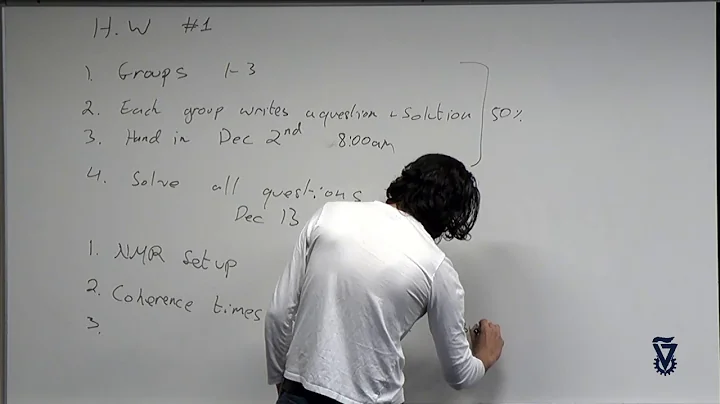 H.W #1
1. Groups 1-3
2. Each group writes a question + Solution
50%
3. Hand in Dec 2nd 8:00am
4. Solve all questions
Dec 13
1. NMR Setup
2. Coherence times
3.